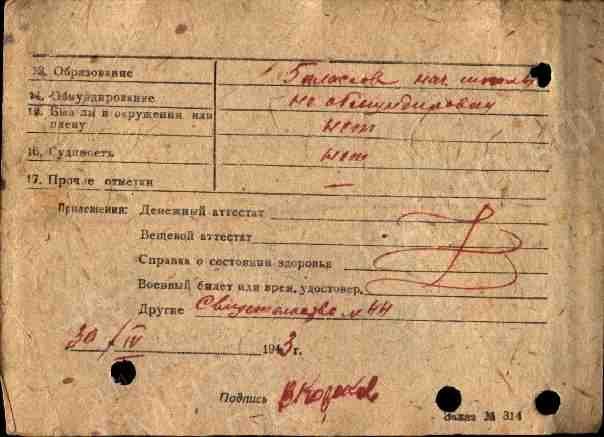 13. Образование 5 классов нач. школы
14. Обмундирование не обмундирован
15. Был ли в окружении или нет
плену
16. Судимость нет
17. Прочие отметки —
Приложения: Денежный аттестат
Вещевой аттестат
Справка о состоянии здоровья
Военный билет или врем. удостовер.
Другие Свидетельство № 44
30/IV 1943 г.
Подпись
Заказ № 314